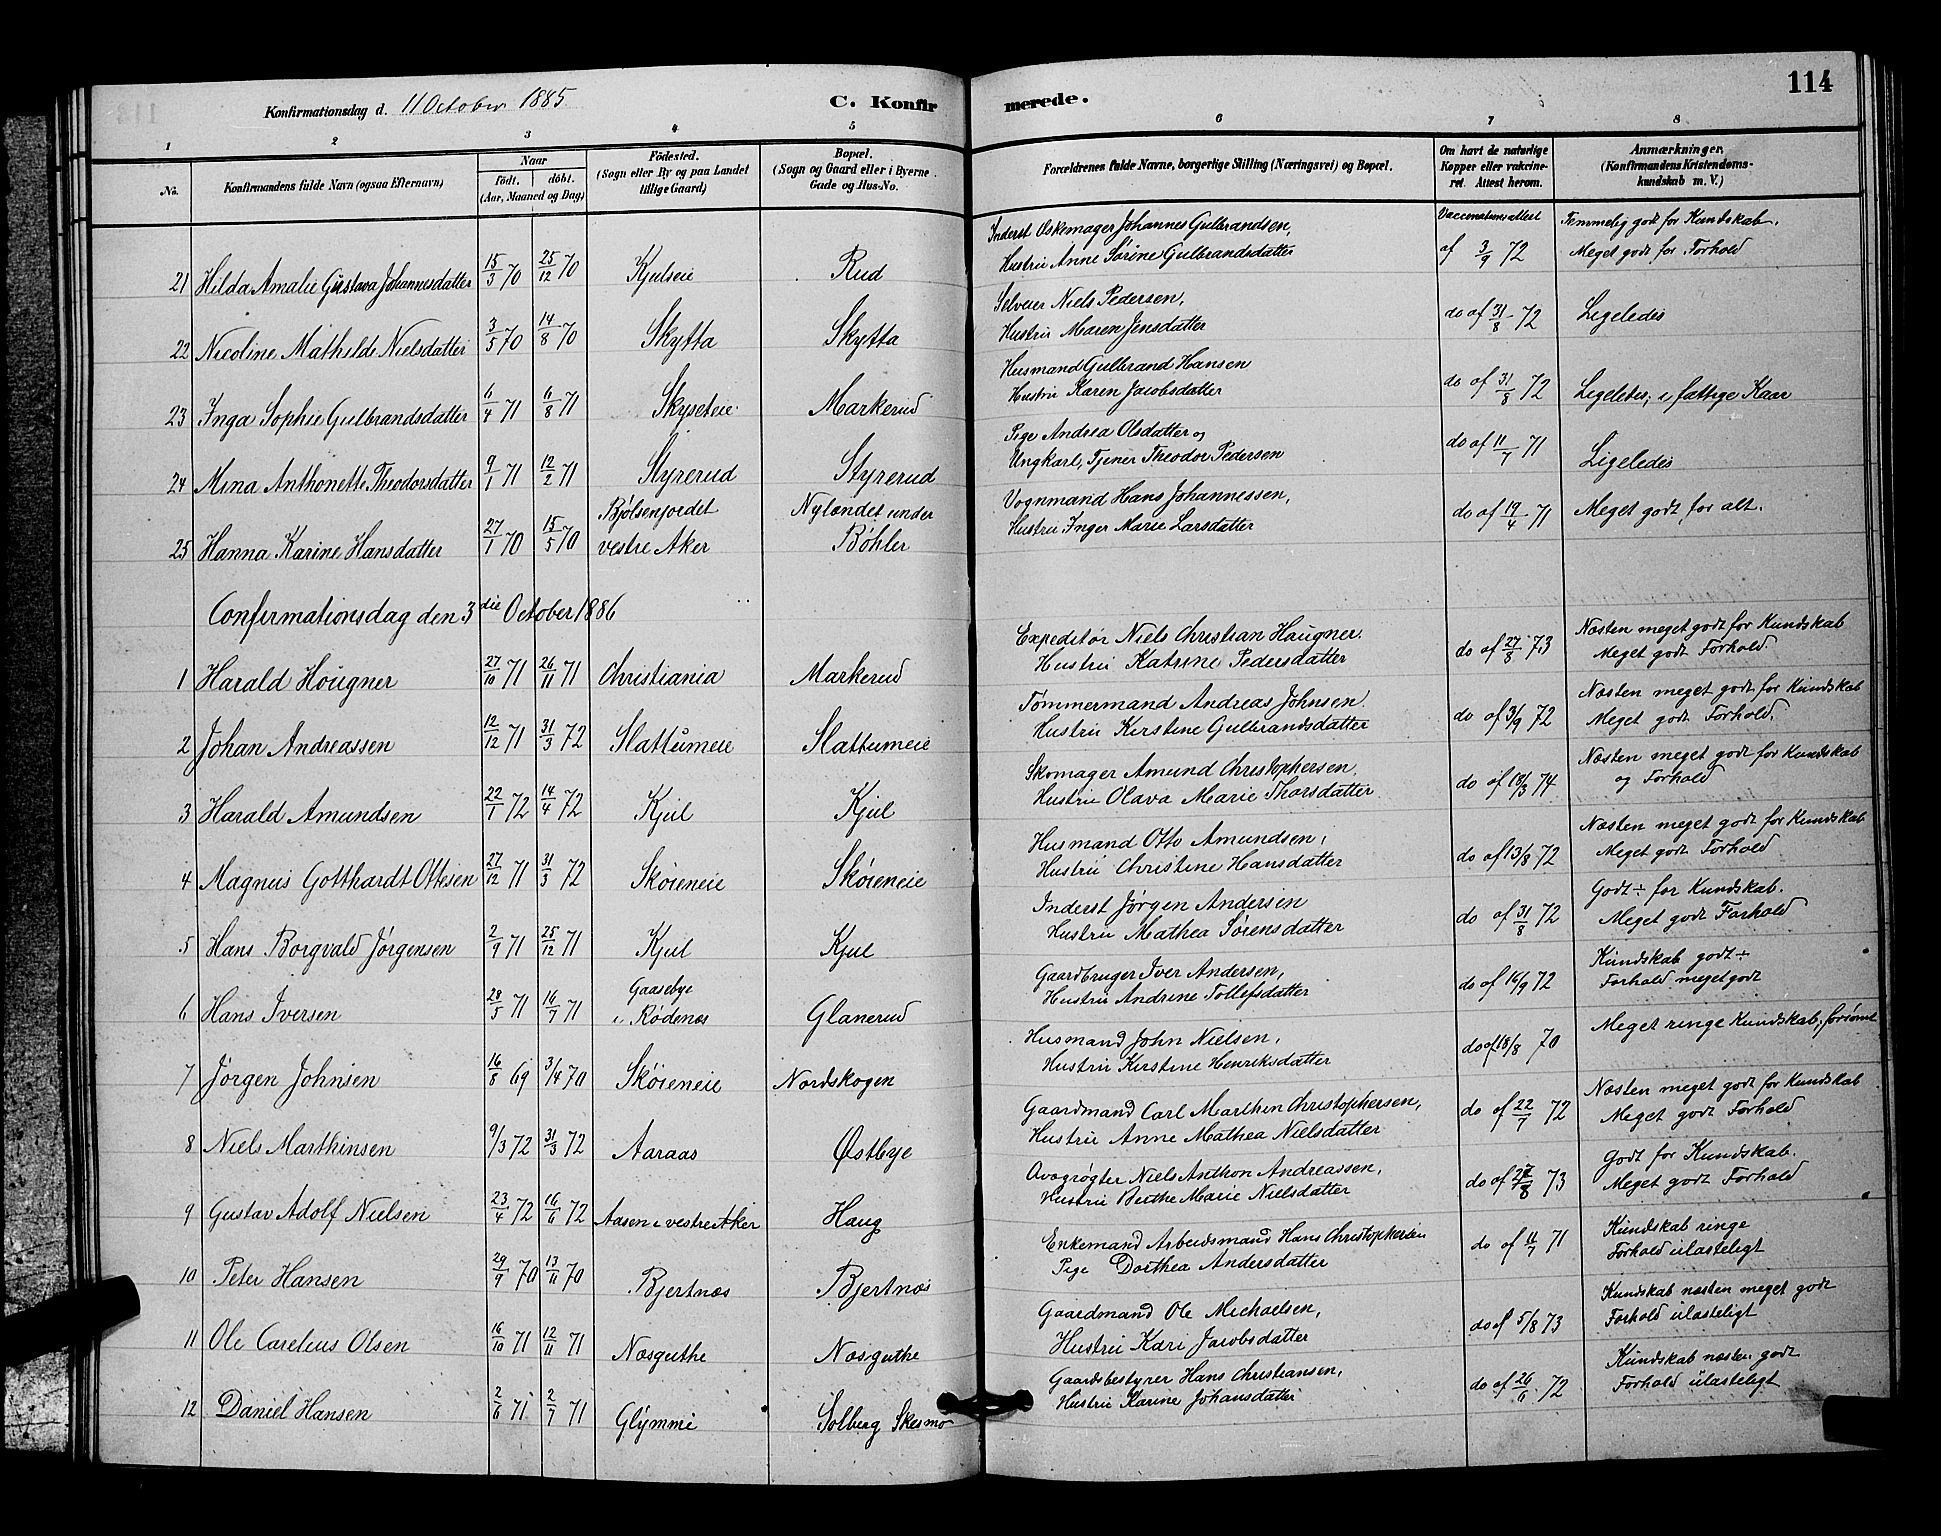 114
Konfirmationsdag d. 11 October 1885
C. Konfirmerede.
1 2 3 4 5 6 7 8
No.
Konfirmandens fulde Navn (ogsaa Efternavn)
Naar
født. døbt.
(Aar, Maaned og Dag)
Födested.
(Sogn eller By og paa Landet
tillige Gaard)
Bopæl.
(Sogn og Gaard eller i Byerne
Gade og Hus-No.
Forældrenes fulde Navne, borgerlige Stilling (Næringsvei) og Bopæl.
Om havt de naturlige
Kopper eller vakcine-
ret. Attest herom.
Anmærkninger.
(Konfirmandens Kristendoms-
kundskab m. V.)
21 Hilda Amalie Gustava Johannesdatter 15/3 70 25/12 70 Kjulseie Rud
Inderst Oskemager Johannes Gulbrandsen,
Hustru Anne Sørine Gulbrandsdatter
Vaccinationsattest
af 3/9 72
Temmelig godt for Kundskab.
Meget godt for Forhold
22 Nicoline Mathilde Nielsdatter 3/5 70 14/8 70 Skytta Skytta
Selveier Niels Pedersen,
Hustru Maren Jensdatter
do af 31/8 72 Ligeledes
23 Inga Sophie Gulbrandsdatter 6/4 71 6/8 71 Skyseteie Markerud
Husmand Gulbrand Hansen
Hustru Karen Jacobsdatter
do af 31/8 72 Ligeledes; i fattige Kaar
24 Mina Anthonette Theodorsdatter 9/1 71 12/2 71 Styrerud Styrerud
Pige Andrea Olsdatter og
Ungkarl, Tjener Theodor Pedersen
do af 11/7 71 Ligeledes
25 Hanna Karine Hansdatter 27/1 70 15/5 70
Bjølsenjordet
vestre Aker
Nylændet under
Böhler
Vognmand Hans Johannessen,
Hustru Inger Marie Larsdatter
do af 19/4 71 Meget godt for alt.
Confirmationsdag den 3die October 1886
1 Harald Hougner 27/10 71 26/11 71 Christiania Markerud
Expeditör Niels Christian Haugner.
Hustru Katrine Pedersdatter
do af 27/8 73
Næsten meget godt for Kundskab
Meget godt Forhold.
2 Johan Andreassen 12/12 71 31/3 72 Slattumeie Slattumeie
Tømmermand Andreas Johnsen
Hustru Kirstine Gulbrandsdatter
do af 3/9 72
Næsten meget godt for Kundskab
Meget godt Forhold.
3 Harald Amundsen 22/1 72 14/4 72 Kjul Kjul
Skomager Amund Christophersen,
Hustru Olava Marie Thorsdatter
do af 18/3 74
Næsten meget godt for Kundskab
og Forhold
4 Magnus Gotthardt Ottesen 27/12 71 31/3 72 Skøieneie Skøieneie
Husmand Otto Amundsen,
Hustru Christine Hansdatter
do af 13/8 72
Næsten meget godt for Kundskab
Meget godt Forhold
5 Hans Borgvald Jørgensen 2/9 71 25/12 71 Kjul Kjul
Inderst Jørgen Andersen
Hustru Mathea Sørensdatter
do af 31/8 72
Godt ÷ for Kundskab.
Meget godt Forhold
6 Hans Iversen 28/5 71 16/7 71
Gaasebye
i Rödenæs
Glanerud
Gaardbruger Iver Andersen,
Hustru Andrine Tollefsdatter
do af 16/9 72
Kundskab godt ÷
Forhold meget godt
7 Jörgen Johnsen 16/8 69 3/4 70 Skøieneie Nordskogen
Husmand John Nielsen,
Hustru Kirstine Henriksdatter
do af 18/8 70
Meget ringe Kundskab, forsømt
8 Niels Marthinsen 9/3 72 31/3 72 Aaraas Østbye
Gaardmand Carl Marthin Christophersen,
Hustru Anne Mathea Nielsdatter
do af 22/7 72
Næsten meget godt for Kundskab
Meget godt Forhold
9 Gustav Adolf Nielsen 23/4 72 16/6 72 Aasen i vestre Aker Haug
Niels Anthon Andreassen,
Hustru Berthe Marie Nielsdatter
do af 27/8 73
Godt for Kundskab.
Meget godt Forhold
10 Peter Hansen 29/9 70 13/11 70 Bjertnæs Bjertnæs
Enkemand Arbeidsmand Hans Christophersen
Pige Dorthea Andersdatter
do af 11/7 71
Kundskab ringe
Forhold ulasteligt
11 Ole Carelius Olsen 16/10 71 12/11 71 Næsguthe Næsguthe
Gaardmand Ole Michaelsen,
Hustru Kari Jacobsdatter
do af 5/8 73
Kundskab næsten meget godt
Forhold ulasteligt
12 Daniel Hansen 2/6 71 2/7 71 Glymmi Solberg Skesmo
Gaardsbestyrer Hans Christiansen,
Hustru Karine Johansdatter
do af 26/6 72
Kundskab næsten godt
Forhold ulasteligt